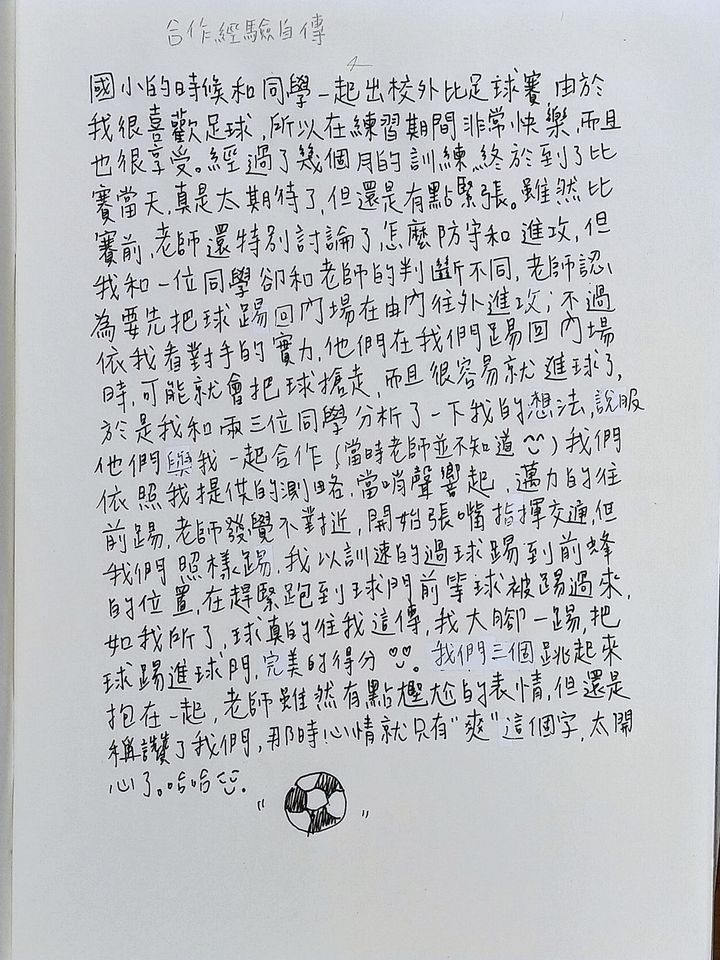 合作經驗自傳
國小的時候和同學一起出校外比足球賽 由於
我很喜歡足球,所以在練習期間非常快樂,而且
也很享受。經過了幾個月的訓練,終於到了比
賽當天,真是太期待了,但還是有點緊張。雖然比
賽前,老師還特別討論了,怎麼防守和進攻,但
我和一位同學卻和老師的判斷不同,老師認
為要先把球踢回內場在由內往外進攻;不過
依我看對手的實力,他們在我們踢回內場
時,可能就會把球搶走,而且很容易就進球了,
於是我和兩三位同學分析了一下我的想法,說服
他們與我一起合作(當時老師並不知道)我們
依照我提供的測略,當哨聲響起 邁力的往
前踢,老師發覺不對近,開始張嘴指揮交通,但
我們照樣踢,我以訓速的過球踢到前蜂
的位置,在趕緊跑到球門前等球被踢過來,
如我所了,球真的往我這傳,我大腳一踢,把
球踢進球門,完美的得分。我們三個跳起來
抱在一起,老師雖然有點尷尬的表情,但還是
稱讚了我們,那時心情就只有"爽"這個字,太開
心了。哈哈。
" "